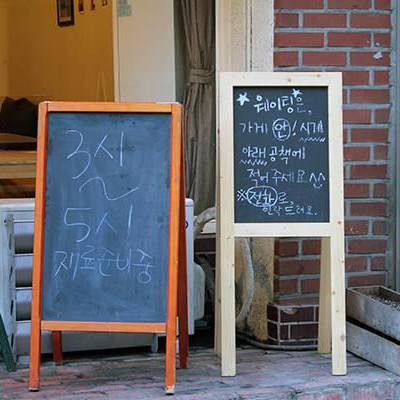 3시
~
5시
재료준비중
★웨이팅은,★
가게 안! 시계
아래 공책에
적어 주세요
※전화로,
연락드려요.